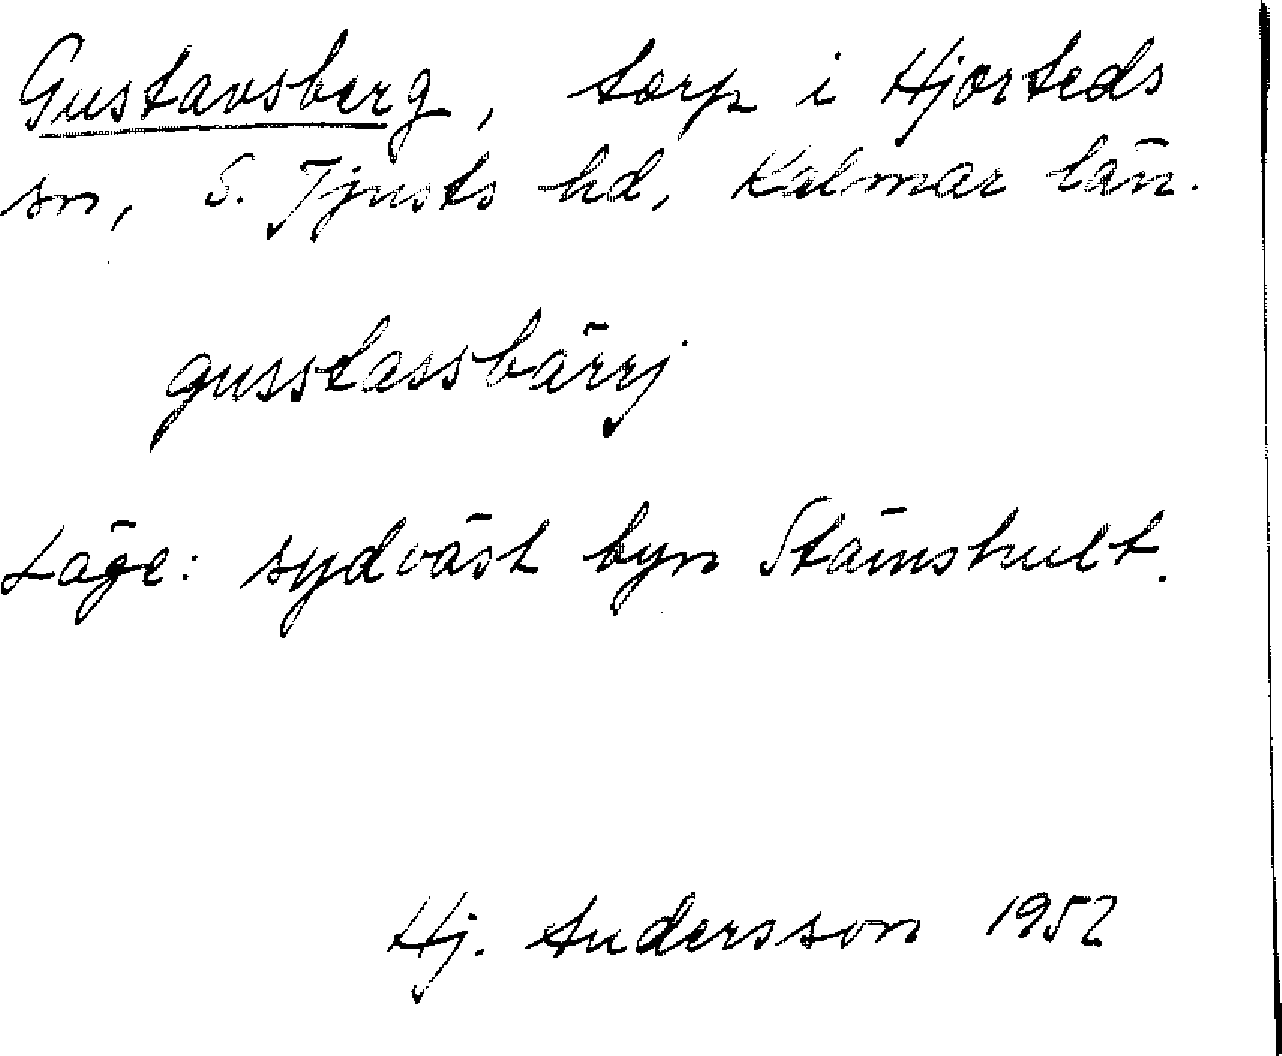 Gustavsberg, torp i Hjorteds
sn, S. Tjusts hd, Kalmar län.
gusstassbärrj
Läge: sydväst byn Stämshult.
Hj. Andersson 1952